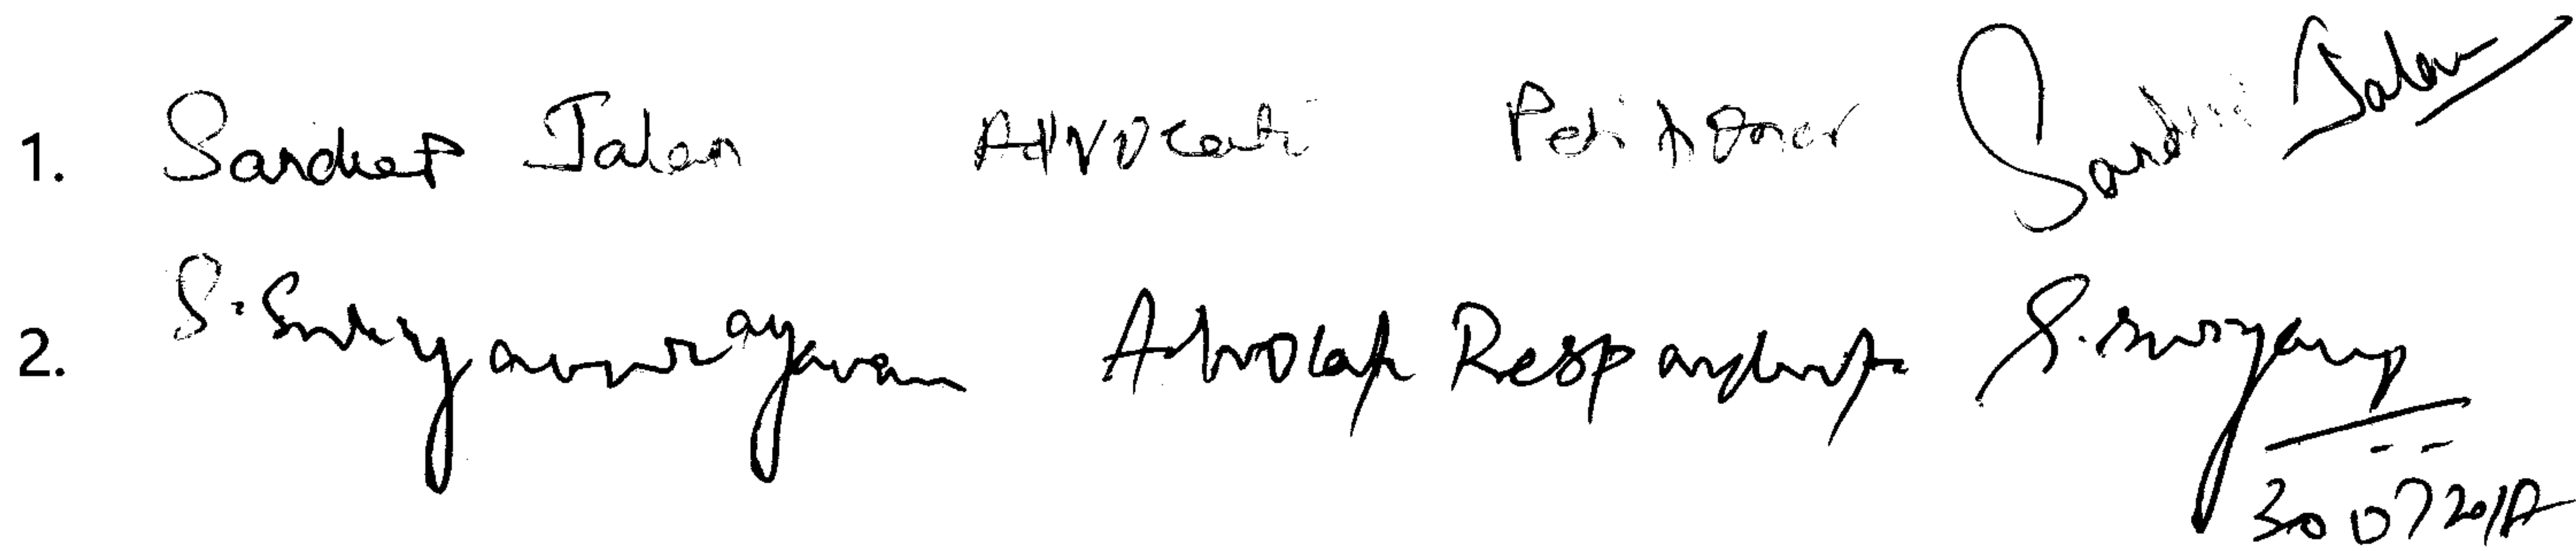 1. Sandeep Jalan Advocate Petitioner Sandeep Jalan
2. S. Suryanarayanan Advocate Respondent S. Suryana